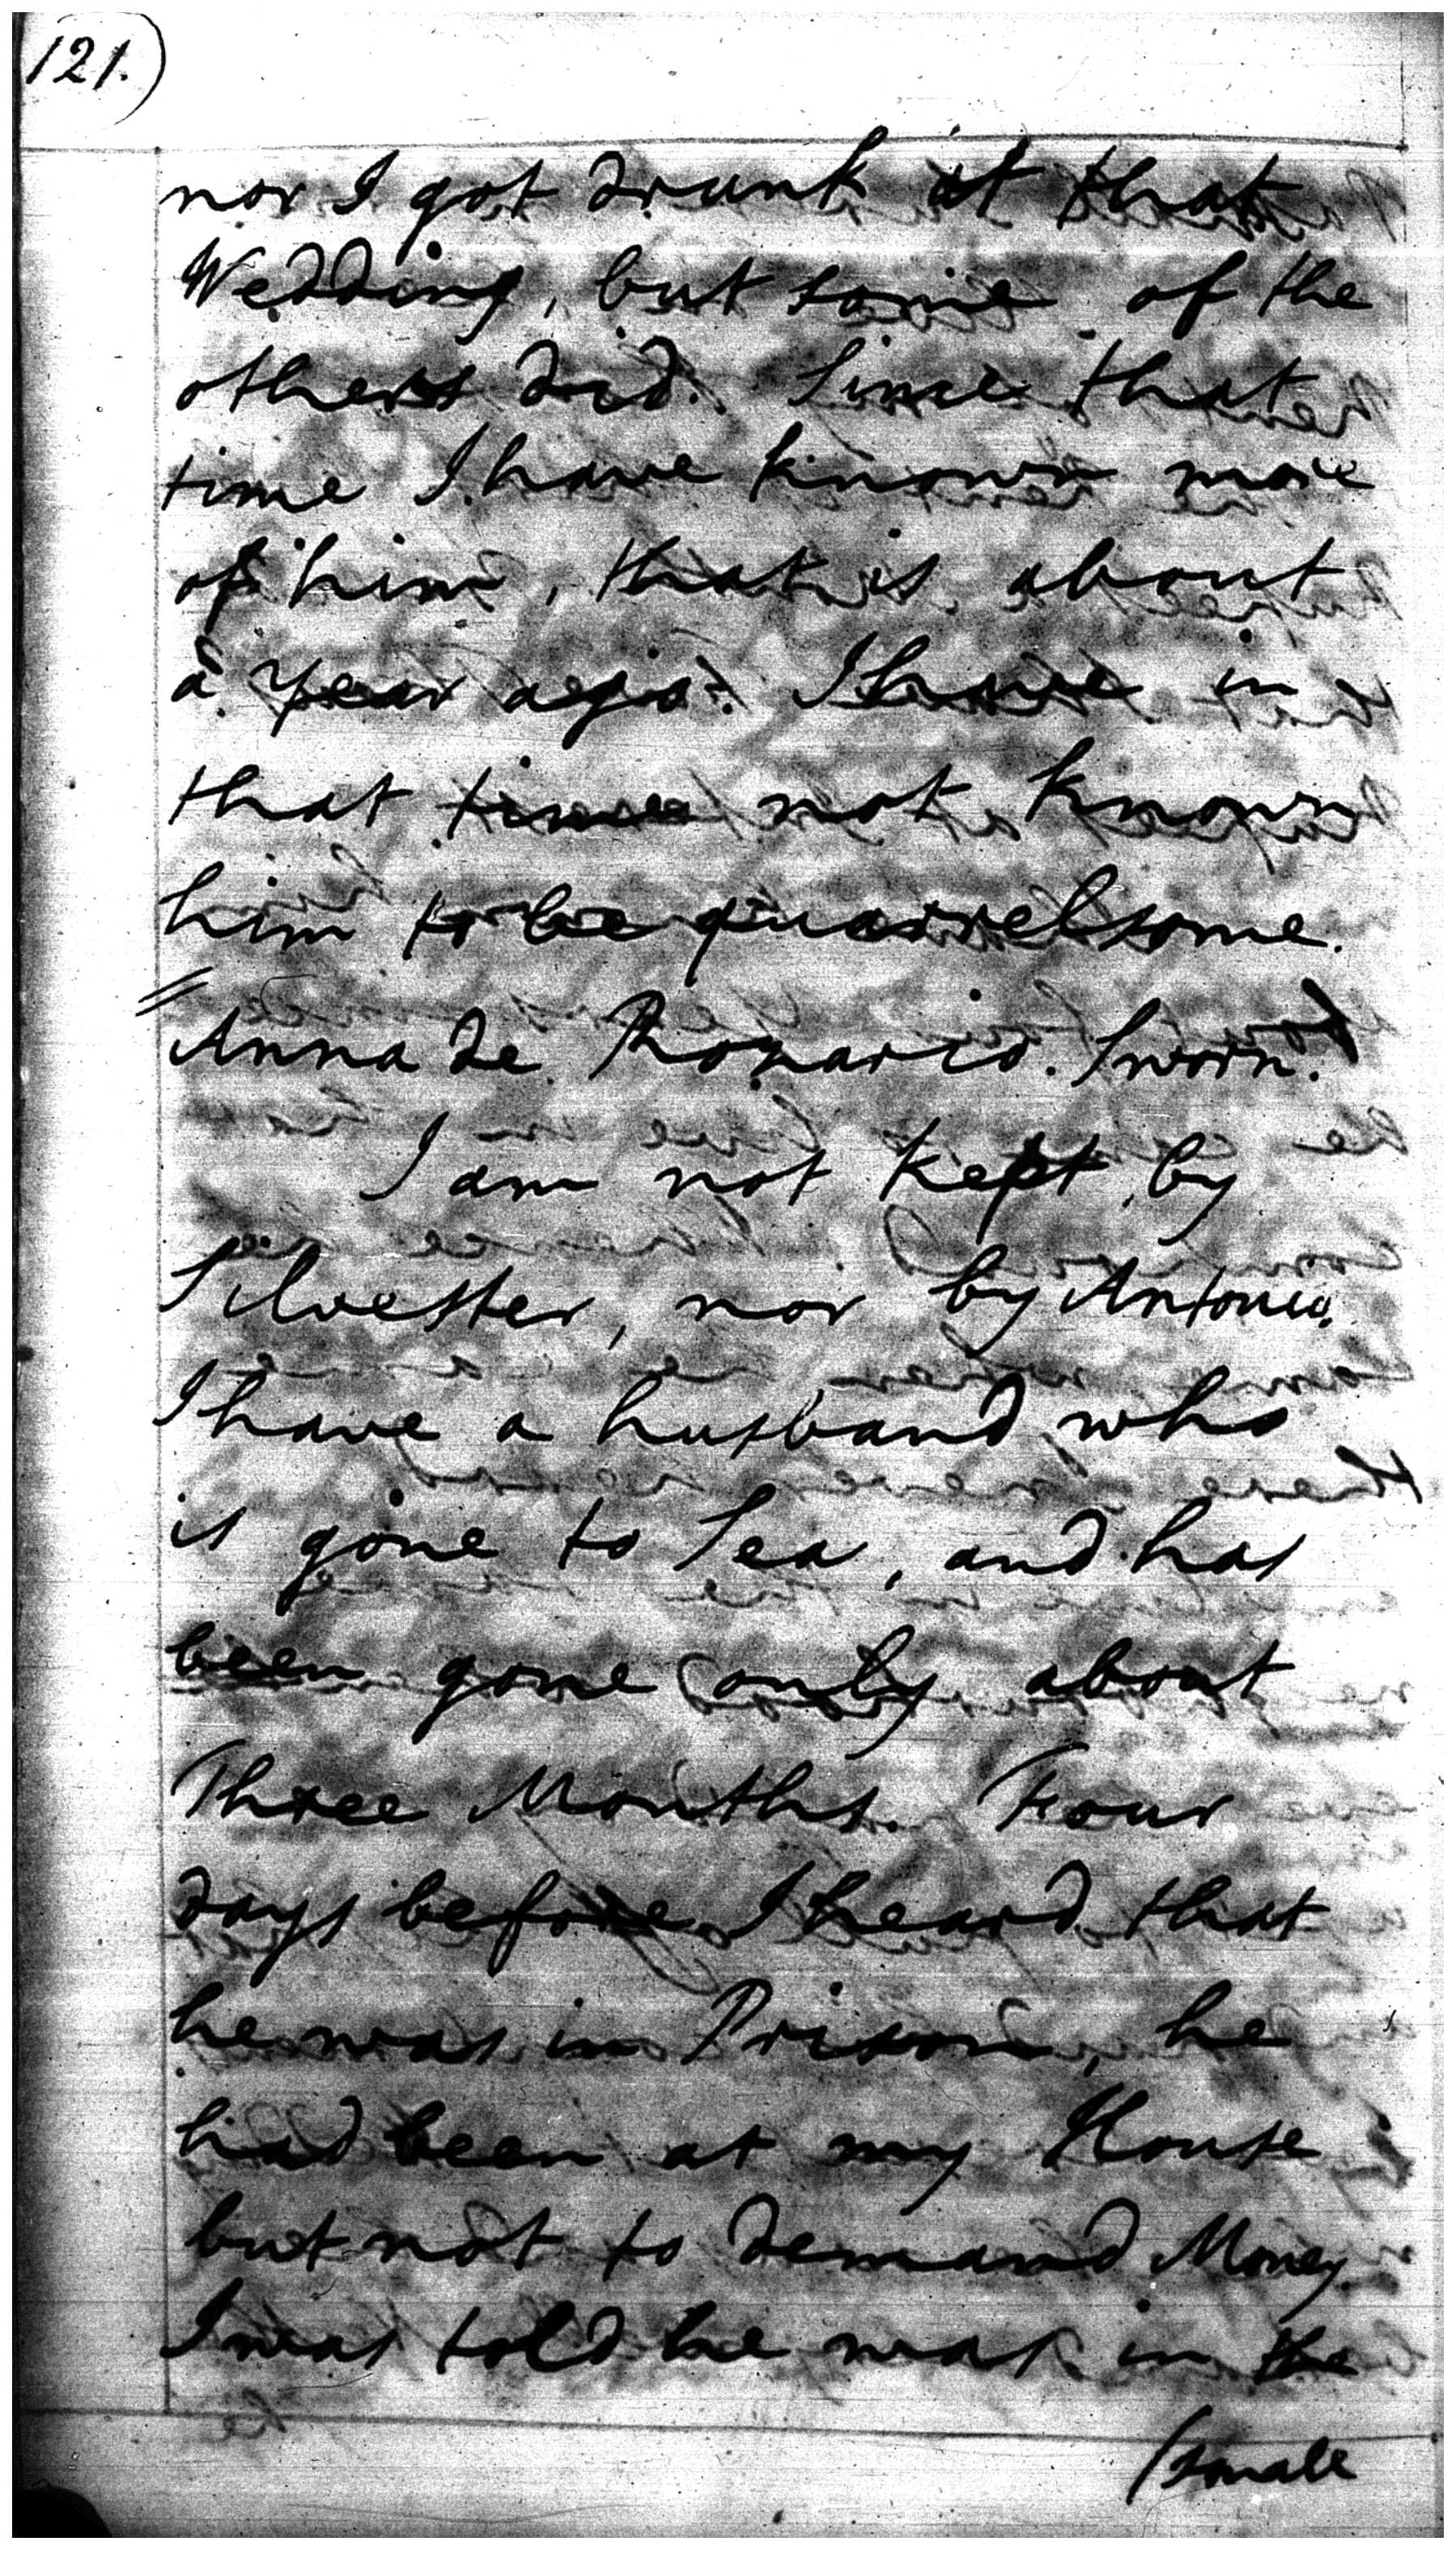 121.)
nor I got drunk at that
Wedding, but some of the
others did. Since that
time I have known more
of him, that is about
a year ago. I have in
that time not known
him to be quarrelsome.
Anna de Rozario. Sworn.
I am not kept by
Silvester, nor by Antonio.
I have a husband who
is gone to Sea, and has
been gone only about
Three Months. Four
days before I heard that
he was in Prison, he
had been at my House
but not to demand Money.
I was told he was in the
/small